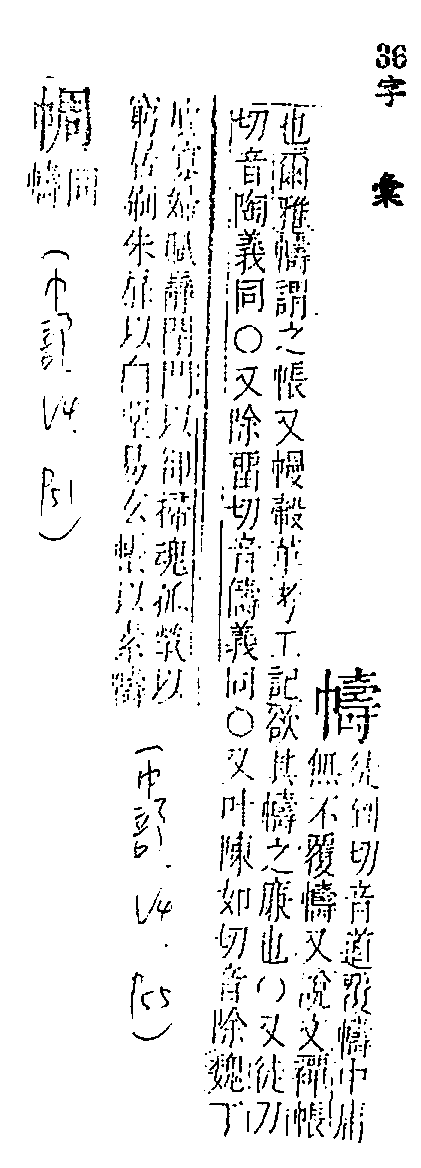 36字彙
幬
徒到切音道覆幬中庸
無不覆幬又說文襌帳
也爾雅幬謂之帳又幔轂革考工記欲其幬之廉也〇又徒刀
切音陶義同〇又除畱切音儔義同〇又叶陳如切音除魏丁
廙寡婦賦靜閉門以却掃魂孤煢以
窮居刷朱扉以白堊易玄帳以素幬
(巾部. V4. P55)
同
幬
(巾部. V4. P51)